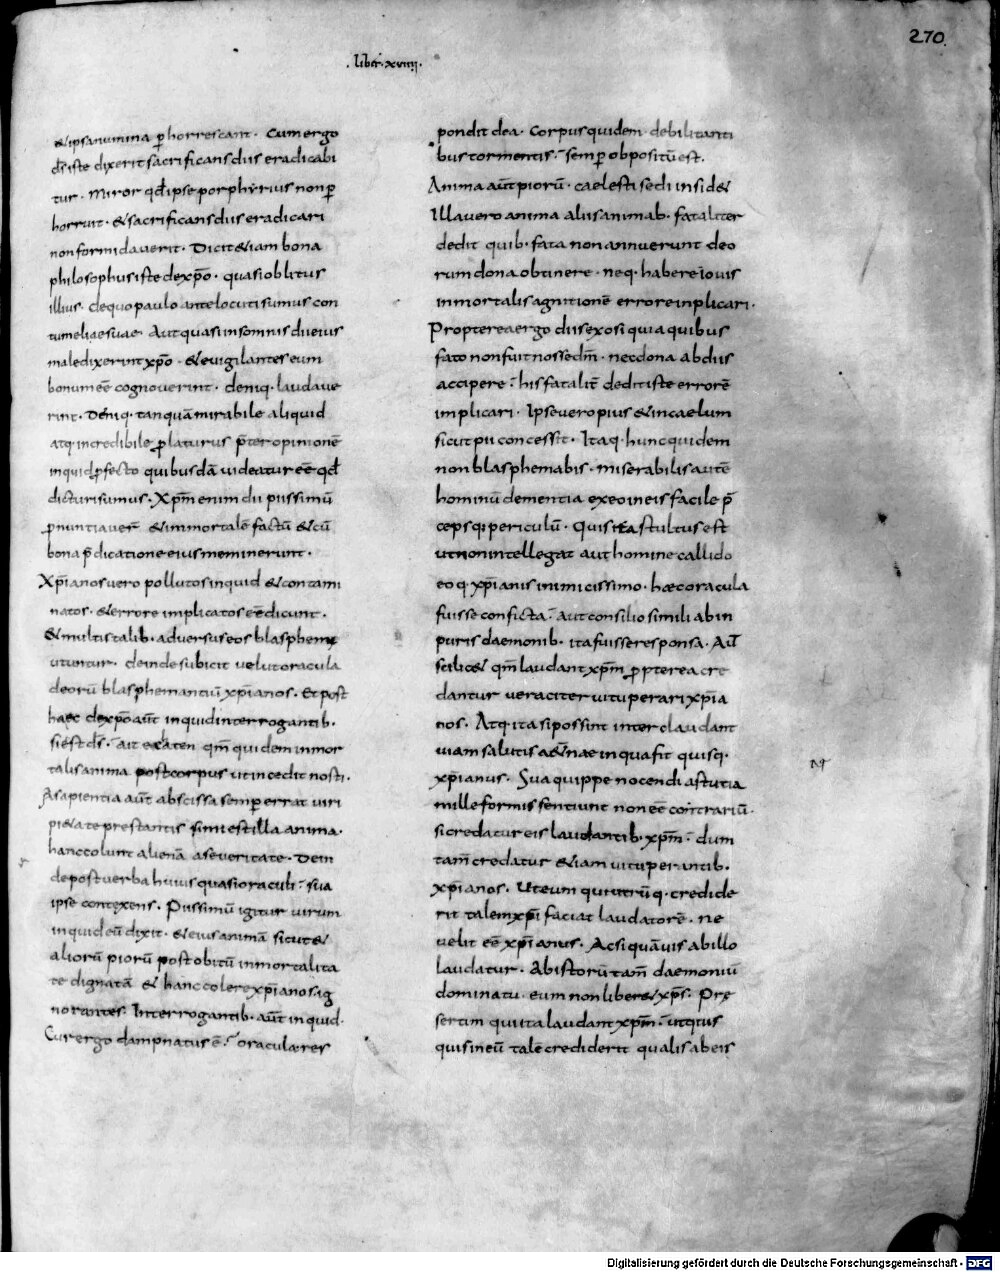 270
. liber . xviiii .
& ipsa numina ꝑhorrescant . Cum ergo
d̄s iste dixerit sacrificans diis eradicabi
tur . Miror qd̄ ipse porphyrius non ꝑ
horruit . & sacrificans diis eradicari
non formidaverit . Dicit & iam bona
philosophus iste de xp̄o . quasi oblitus
illius . de quo paulo ante locuti sumus con
tumeliae suae . Aut quasi in somnis dii eius
maledixerint xp̄o . & evigilantes eum
bonum ēē cognoverint . deniq . laudave
rint . Deniq . tanquā mirabile aliquid
atq . incredibile ꝓlaturus p̄ter opinionē
inquid ꝓfecto quibusdā videatur ēē qd̄
dicturi sumus . Xp̄m enim dii piissimū
ꝓnuntiaver̄ & immortalē factū & cū
bona p̄dicatione eius meminerunt .
Xp̄ianos vero pollutos inquid & contami
natos . & errore implicatos ēē dicunt .
& multis talib . adversus eos blasphemiis
utuntur . deinde subicit velut oracula
deorū blasphemantiū xp̄ianos . Et post
haec de xp̄o aūt inquid interrogantib .
si est d̄s . ait ecaten qm̄ quidem inmor
talis anima post corpus ut incedit nosti .
A sapientia aūt abscissa semper errat viri
pi&ate prestantis simi est illa anima .
hanc colunt alienā a se veritate . Dein
de post verba huius quasi oraculi : sua
ipse contexens . Piissimū igitur virum
inquid eū dixit . & eius animā sicut &
aliorū piorū post obitū inmortalita
te dignatā & hanc colere xp̄ianos ig
norantes . Interrogantib . aūt inquid .
Cur ergo dampnatus ē : oraculae res
pondit dea . Corpus quidem debilitanti
bus tormentis : semꝑ obpositū est .
Anima aūt piorū . caelesti sedi insid&
Illa vero anima aliis animab . fataliter
dedit quib . fata non annuerunt deo
rum dona obtinere . neq . habere iovis
inmortalis agnitionē errore inplicari .
Propterea ergo diis exosi quia quibus
fato non fuit nosse dm̄ . nec dona ab diis
accipere : his fatalit̄ dedit iste errorē
implicari . Ipse vero pius & in caelum
sicut pii concessit . Itaq . hunc quidem
non blasphemabis . miserabilis autē
hominū dementia ex eo in eis facile p̄
ceps qı periculū . Quis ita stultus est
ut non intellegat aut homine callido
eoq . xp̄ianis inimicissimo . haec oracula
fuisse conficta : aut consilio simili ab in
puris daemonib . ita fuisse responsa . Aū
scilic& qm̄ laudant xp̄m ꝓpterea cre
dantur veraciter vituperari xp̄ia
nos . Atq . ita si possint intercludant
viam salutis aet̄nae in qua fit quisq .
xp̄ianus . Sua quippe nocendi astutia
milleformi sentiunt non ēē contrariū .
si credatur eis laudantib . xp̄m : dum
tam̄ credatur & iam vituperantib .
xp̄ianos . Ut eum qui utrūq . credide
rit talem xp̄i faciat laudatorē . ne
velit ēē xp̄ianus . Ac si quāvis ab illo
laudatur . Ab istorū tam̄ daemoniū
dominatu . eum non liber& xp̄s . Prę
sertim qui ita laudant xp̄m . ut q̇tus
quis in eū talē crediderit qualis ab eis
Digitalisierung gefördert durch die Deutsche Forschungsgemeinschaft - DFG